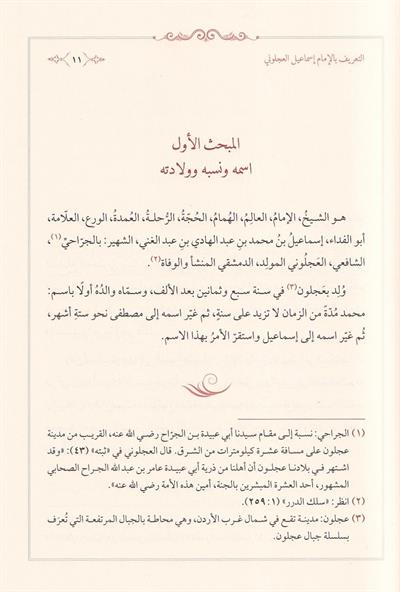 التعريف بالإمام إسماعيل العجلوني
١١
المبحث الأول
اسمه ونسبه وولادته
هو الشيخُ، الإمامُ، العالِمُ، الهُمامُ، الحُجّةُ، الرُّحلةُ، العُمدةُ، الورِع، العلّامة،
أبو الفداء، إسماعيلُ بنُ محمد بنِ عبد الهادي بنِ عبد الغني، الشهير: بالجرّاحيِّ(١)،
الشافعي، العَجلُوني المولِد، الدمشقي المنشأ والوفاة(٢).
وُلِد بعَجلون(٣) في سنة سبع وثمانين بعد الألف، وسمّاه والدُهُ أولًا باسم:
محمد مُدّةً من الزمان لا تزيد على سنةٍ، ثم غيّر اسمه إلى مصطفى نحو ستةِ أشهر،
ثُم غيّر اسمه إلى إسماعيل واستقرّ الأمرُ بهذا الاسم.
(١) الجراحي: نسبة إلى مقام سيدنا أبي عبيدة بن الجرّاح رضي الله عنه، القريب من مدينة
عجلون على مسافة عشرة كيلومترات من الشرق. قال العجلوني في «ثبته» (٤٣): «وقد
اشتهر في بلادنا عجلون أن أهلنا من ذرية أبي عبيدة عامر بن عبد الله الجراح الصحابي
المشهور، أحد العشرة المبشرين بالجنة، أمين هذه الأمة رضي الله عنه».
(٢) انظر: «سلك الدرر» (١: ٢٥٩).
(٣) عجلون: مدينة تقع في شمال غرب الأردن، وهي محاطة بالجبال المرتفعة التي تُعرَف
بسلسلة جبال عجلون.